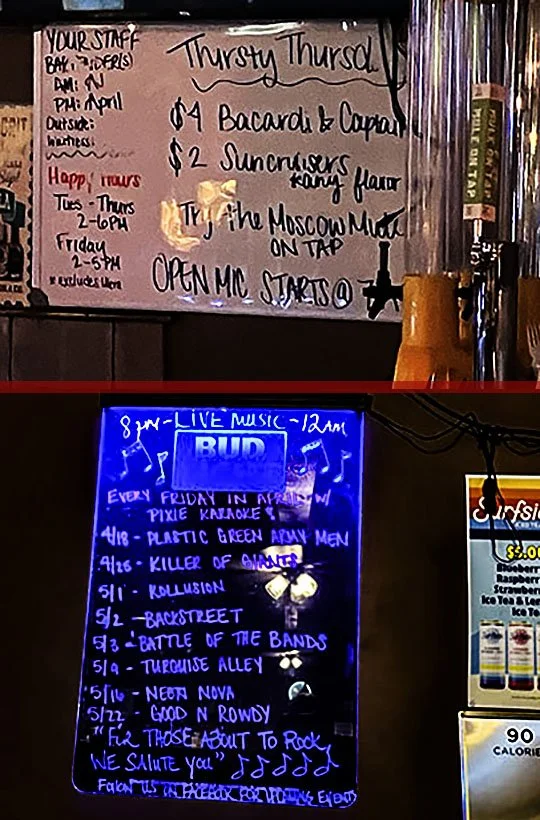 YOUR STAFF
BAR
AM:
PM: April
Outside:
Waitress:
Happy Hours
Tues - Thurs
2-6PM
Friday
2-5PM
Thirsty Thursd
$4 Bacardi & Captain
$2 Suncruisers
*any flavor
Try the Moscow Mule
ON TAP
OPEN MIC STARTS @
MULE ON TAP
8PM - LIVE MUSIC - 12AM
BUD
EVERY FRIDAY IN APRIL W/
PIXIE KARAOKE
4/18 - PLASTIC GREEN ARMY MEN
4/26 - KILLER OF GIANTS
5/1 - ROLLUSION
5/2 - BACKSTREET
5/3 - BATTLE OF THE BANDS
5/9 - TURQUISE ALLEY
5/16 - NEON NOVA
5/22 - GOOD N ROWDY
"FOR THOSE ABOUT TO ROCK,
WE SALUTE YOU"
FOLLOW US IN FACEBOOK FOR UPCOMING EVENTS
Surfsi
$5.0
Blueberr
Raspberr
Strawberr
Ice Tea & Le
Ice Te
90
CALORIE